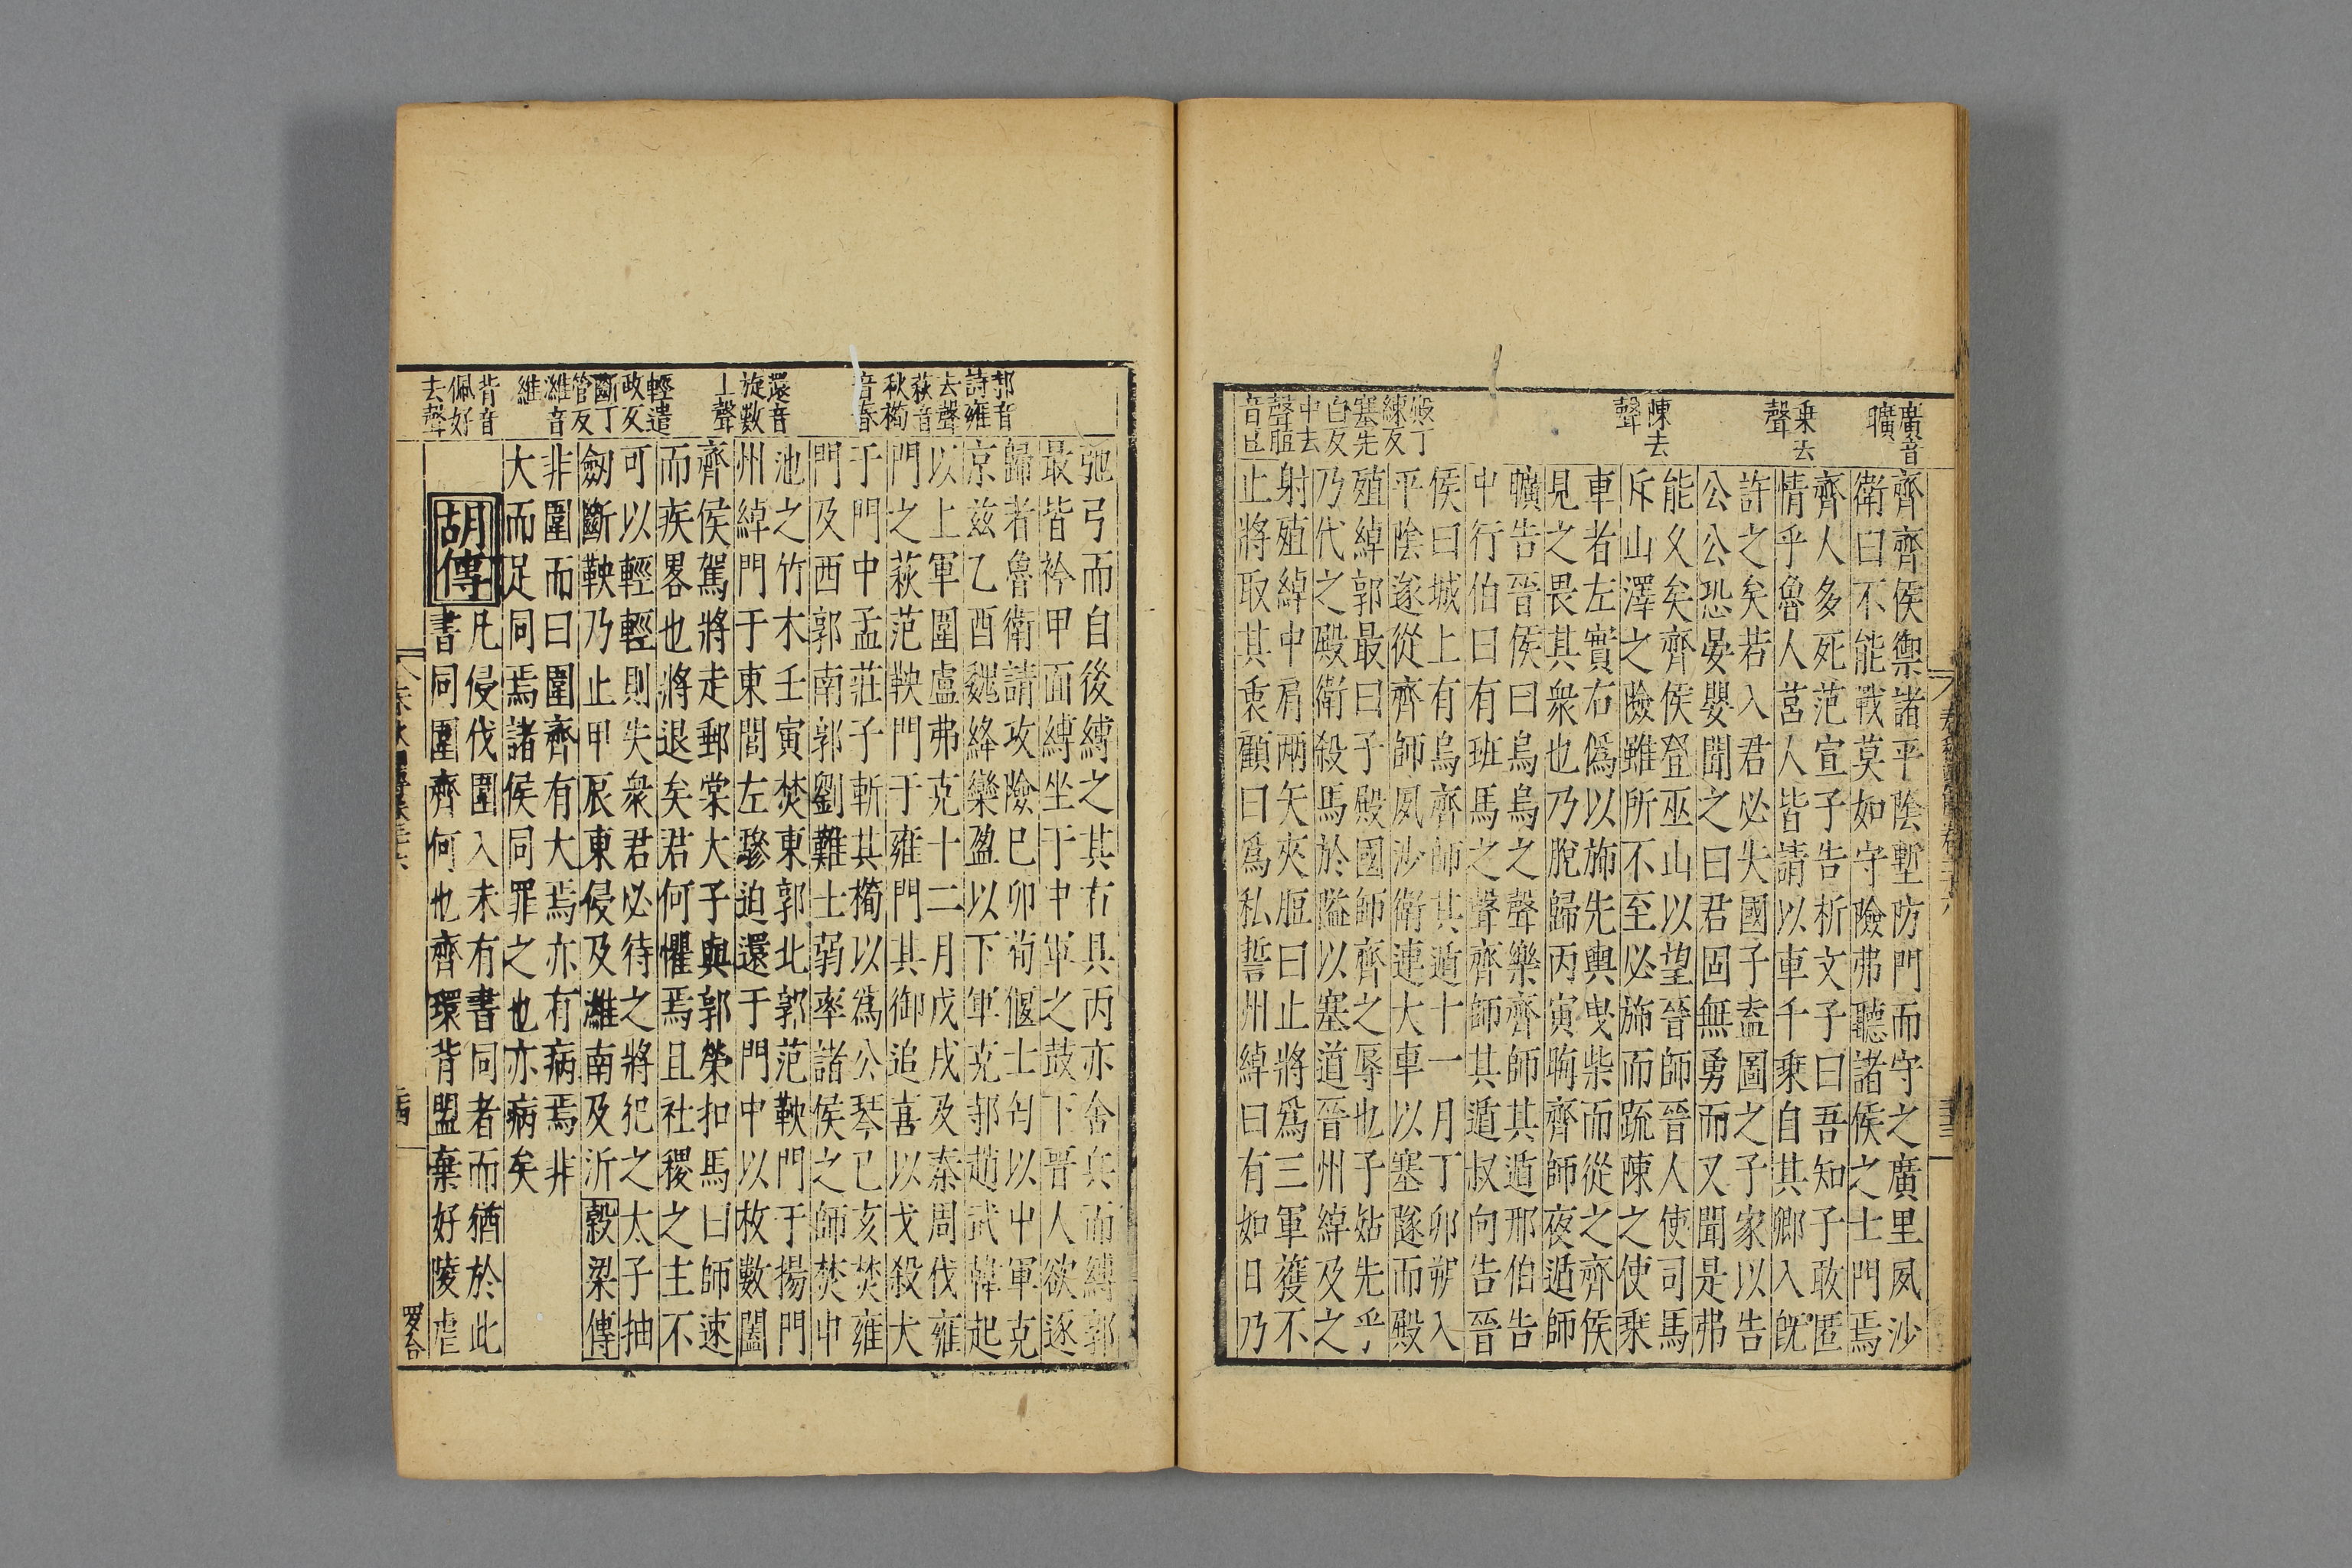 廣音
曠
乗去
聲
陳去
聲
殿丁
練反
塞先
白反
中去
聲脰
音豆
齊齊侯禦諸平陰塹防門而守之廣里夙沙
衛曰不能戰莫如守險弗聽諸侯之士門焉
齊人多死范宣子告析文子曰吾知子敢匿
情乎魯人莒人皆請以車千乗自其鄉入旣
許之矣若入君必失國子盍圖之子家以告
公公恐晏嬰聞之曰君固無勇而又聞是弗
能久矣齊侯登巫山以望晉師晉人使司馬
斥山澤之險雖所不至必斾而疏陳之使乗
車者左實右僞以斾先輿曳柴而從之齊侯
見之畏其衆也乃脫歸丙寅晦齊師夜遁師
曠告晉侯曰烏烏之聲樂齊師其遁邢伯告
中行伯曰有班馬之聲齊師其遁叔向告晉
侯曰城上有烏齊師其遁十一月丁卯朔入
平陰遂從齊師夙沙衛連大車以塞隧而殿
殖綽郭最曰子殿國師齊之辱也子姑先乎
乃代之殿衛殺馬於隘以塞道晉州綽及之
射殖綽中肩兩矢夾脰曰止將爲三軍獲不
止將取其衷顧曰爲私誓州綽曰有如日乃
邿音
詩雍
去聲
萩音
秋橁
音春
還音
旋數
上聲
輕遣
政反
斷丁
管反
濰音
維
背音
佩好
去聲
弛弓而自後縛之其右具丙亦舍兵而縛郭
最皆衿甲面縛坐于中軍之鼓下晉人欲逐
歸者魯衛請攻險已卯荀偃士匄以中軍克
京兹乙酉魏絳欒盈以下軍克邿趙武韓起
以上軍圍盧弗克十二月戊戌及秦周伐雍
門之萩范鞅門于雍門其御追喜以戈殺犬
于門中孟莊子斬其橁以爲公琴已亥焚雍
門及西郭南郭劉難士弱率諸侯之師焚申
池之竹木壬寅焚東郭北郭范鞅門于揚門
州綽門于東閭左驂迫還于門中以枚數闔
齊侯駕將走郵棠大子與郭榮扣馬曰師速
而疾畧也將退矣君何懼焉且社稷之主不
可以輕輕則失衆君必待之將犯之太子抽
劒斷鞅乃止甲辰東侵及濰南及沂 穀梁傳
非圍而曰圍齊有大焉亦有病焉非
大而足同焉諸侯同罪之也亦病矣
胡傳
凡侵伐圍入未有書同者而猶於此
書同圍齊何也齊環背盟棄好陵虐